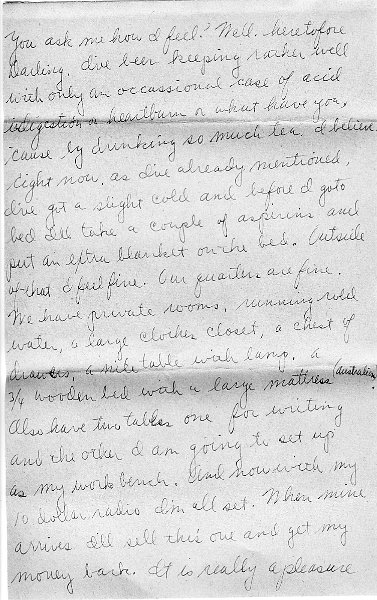 You ask me how I feel? Well. heretofore
Darling, I've been keeping rather well
with only an occassional case of acid
indigestion or heartburn or what have you,
cause by drinking so much tea I believe.
Right now, as I've already mentioned,
I've got a slight cold and before I go to
bed I'll take a couple of aspirins and
put an extra blanket on the bed. Outside
of that I feel fine. Our quarters are fine.
We have private rooms, running cold
water, a large clothes closet, a chest of
drawers, a nite table with lamp, a
3/4 wooden bed with a large mattress (Australian)
Also have two tables one for writing
and the other I am going to set up
as my work bench. And now with my
10 dollar radio I'm all set. When mine
arrives I'll sell this one and get my
money back. It is really a pleasure